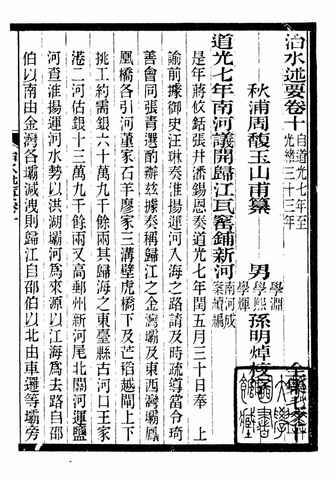 治水述要卷十 自道光七年至光緒三十三年
秋浦周馥玉山甫纂 男 學淵 學熙 學煇 孫明焯校
道光七年南河議開歸江瓦窰鋪新河 南河成案續編
是年蔣攸銛張井潘錫恩奏道光七年閏五月三十日奉 上
諭前據御史汪琳奏淮揚運河入海之路請及時疏導當令琦
善會同張青選酌辦茲據奏稱歸江之金灣壩及東西灣壩鳳
凰橋各引河董家石羊廖家三溝壁虎橋下及芒稻越閘上下
挑工約需銀六十萬九千餘兩其歸海之東臺縣古河口王家
港二河估銀十三萬九千餘兩又高郵州新河尾北關河運鹽
河查淮揚運河水勢以洪湖壩河爲來源以江海爲去路自邵
伯以南由金灣各壩減洩則歸江自邵伯以北由車邏等壩旁